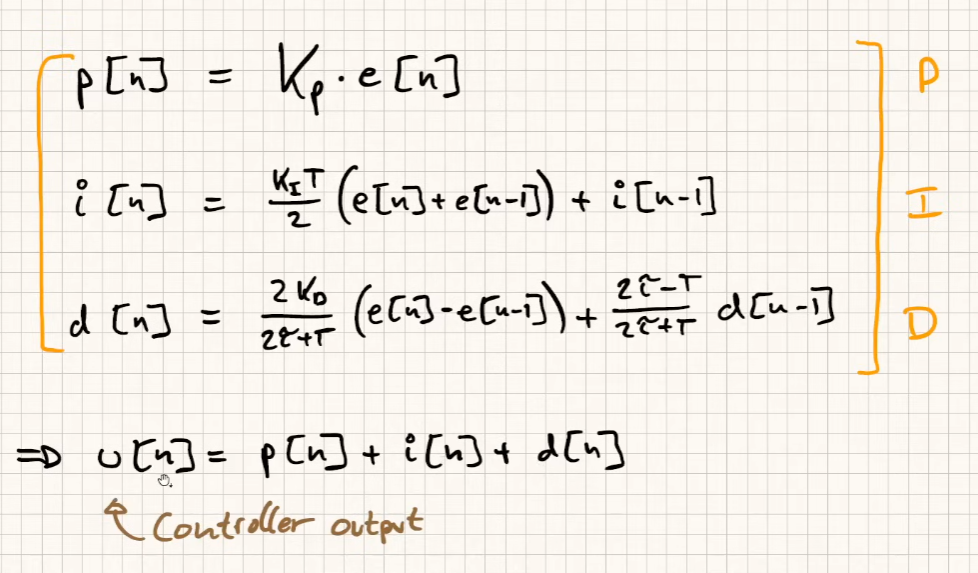 p[n] = Kp · e[n] P
i[n] = KIT/2 (e[n]+e[n-1]) + i[n-1] I
d[n] = 2KD/2τ+T (e[n]-e[n-1]) + 2τ-T/2τ+T d[n-1] D
⇒ u[n] = p[n] + i[n] + d[n]
Controller output